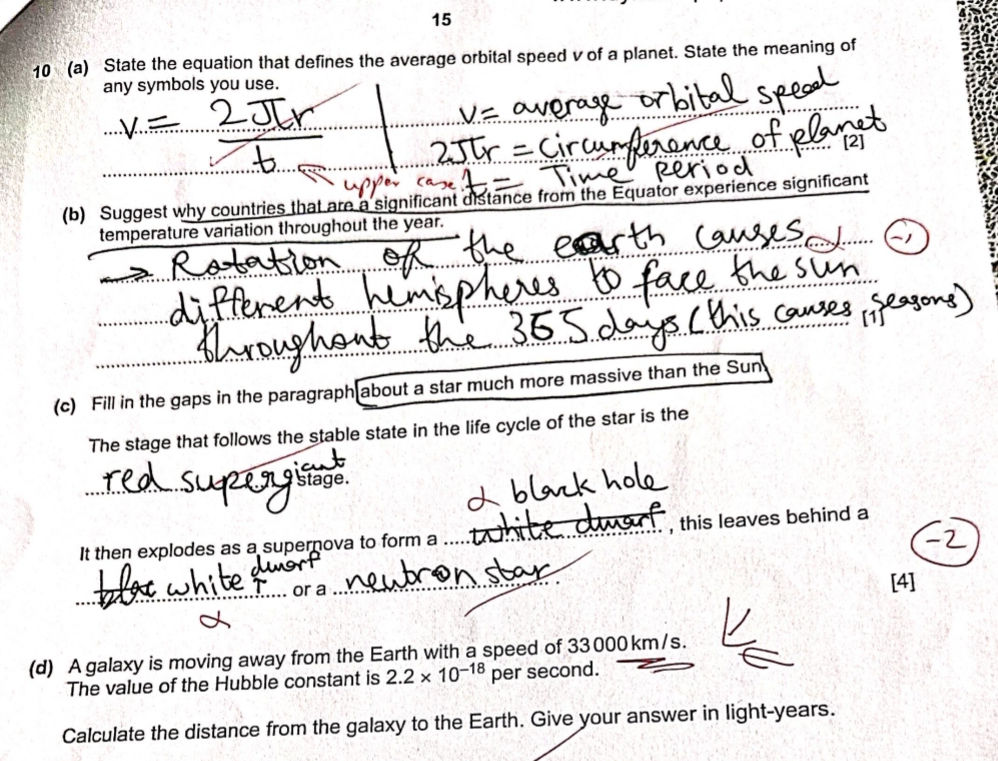 15
10 (a) State the equation that defines the average orbital speed v of a planet. State the meaning of
any symbols you use.
v = 2πr / t
v = average orbital speed
2πr = circumference of planet
[2]
upper case
t = Time period
(b) Suggest why countries that are a significant distance from the Equator experience significant
temperature variation throughout the year.
→ Rotation of the earth causes
-1
different hemispheres to face the sun
throughout the 365 days (this causes seasons)
[1]
(c) Fill in the gaps in the paragraph about a star much more massive than the Sun.
The stage that follows the stable state in the life cycle of the star is the
red supergiant stage.
black hole
It then explodes as a supernova to form a white dwarf, this leaves behind a
-2
white dwarf or a neutron star.
[4]
(d) A galaxy is moving away from the Earth with a speed of 33 000 km/s.
The value of the Hubble constant is 2.2 × 10⁻¹⁸ per second.
Calculate the distance from the galaxy to the Earth. Give your answer in light-years.